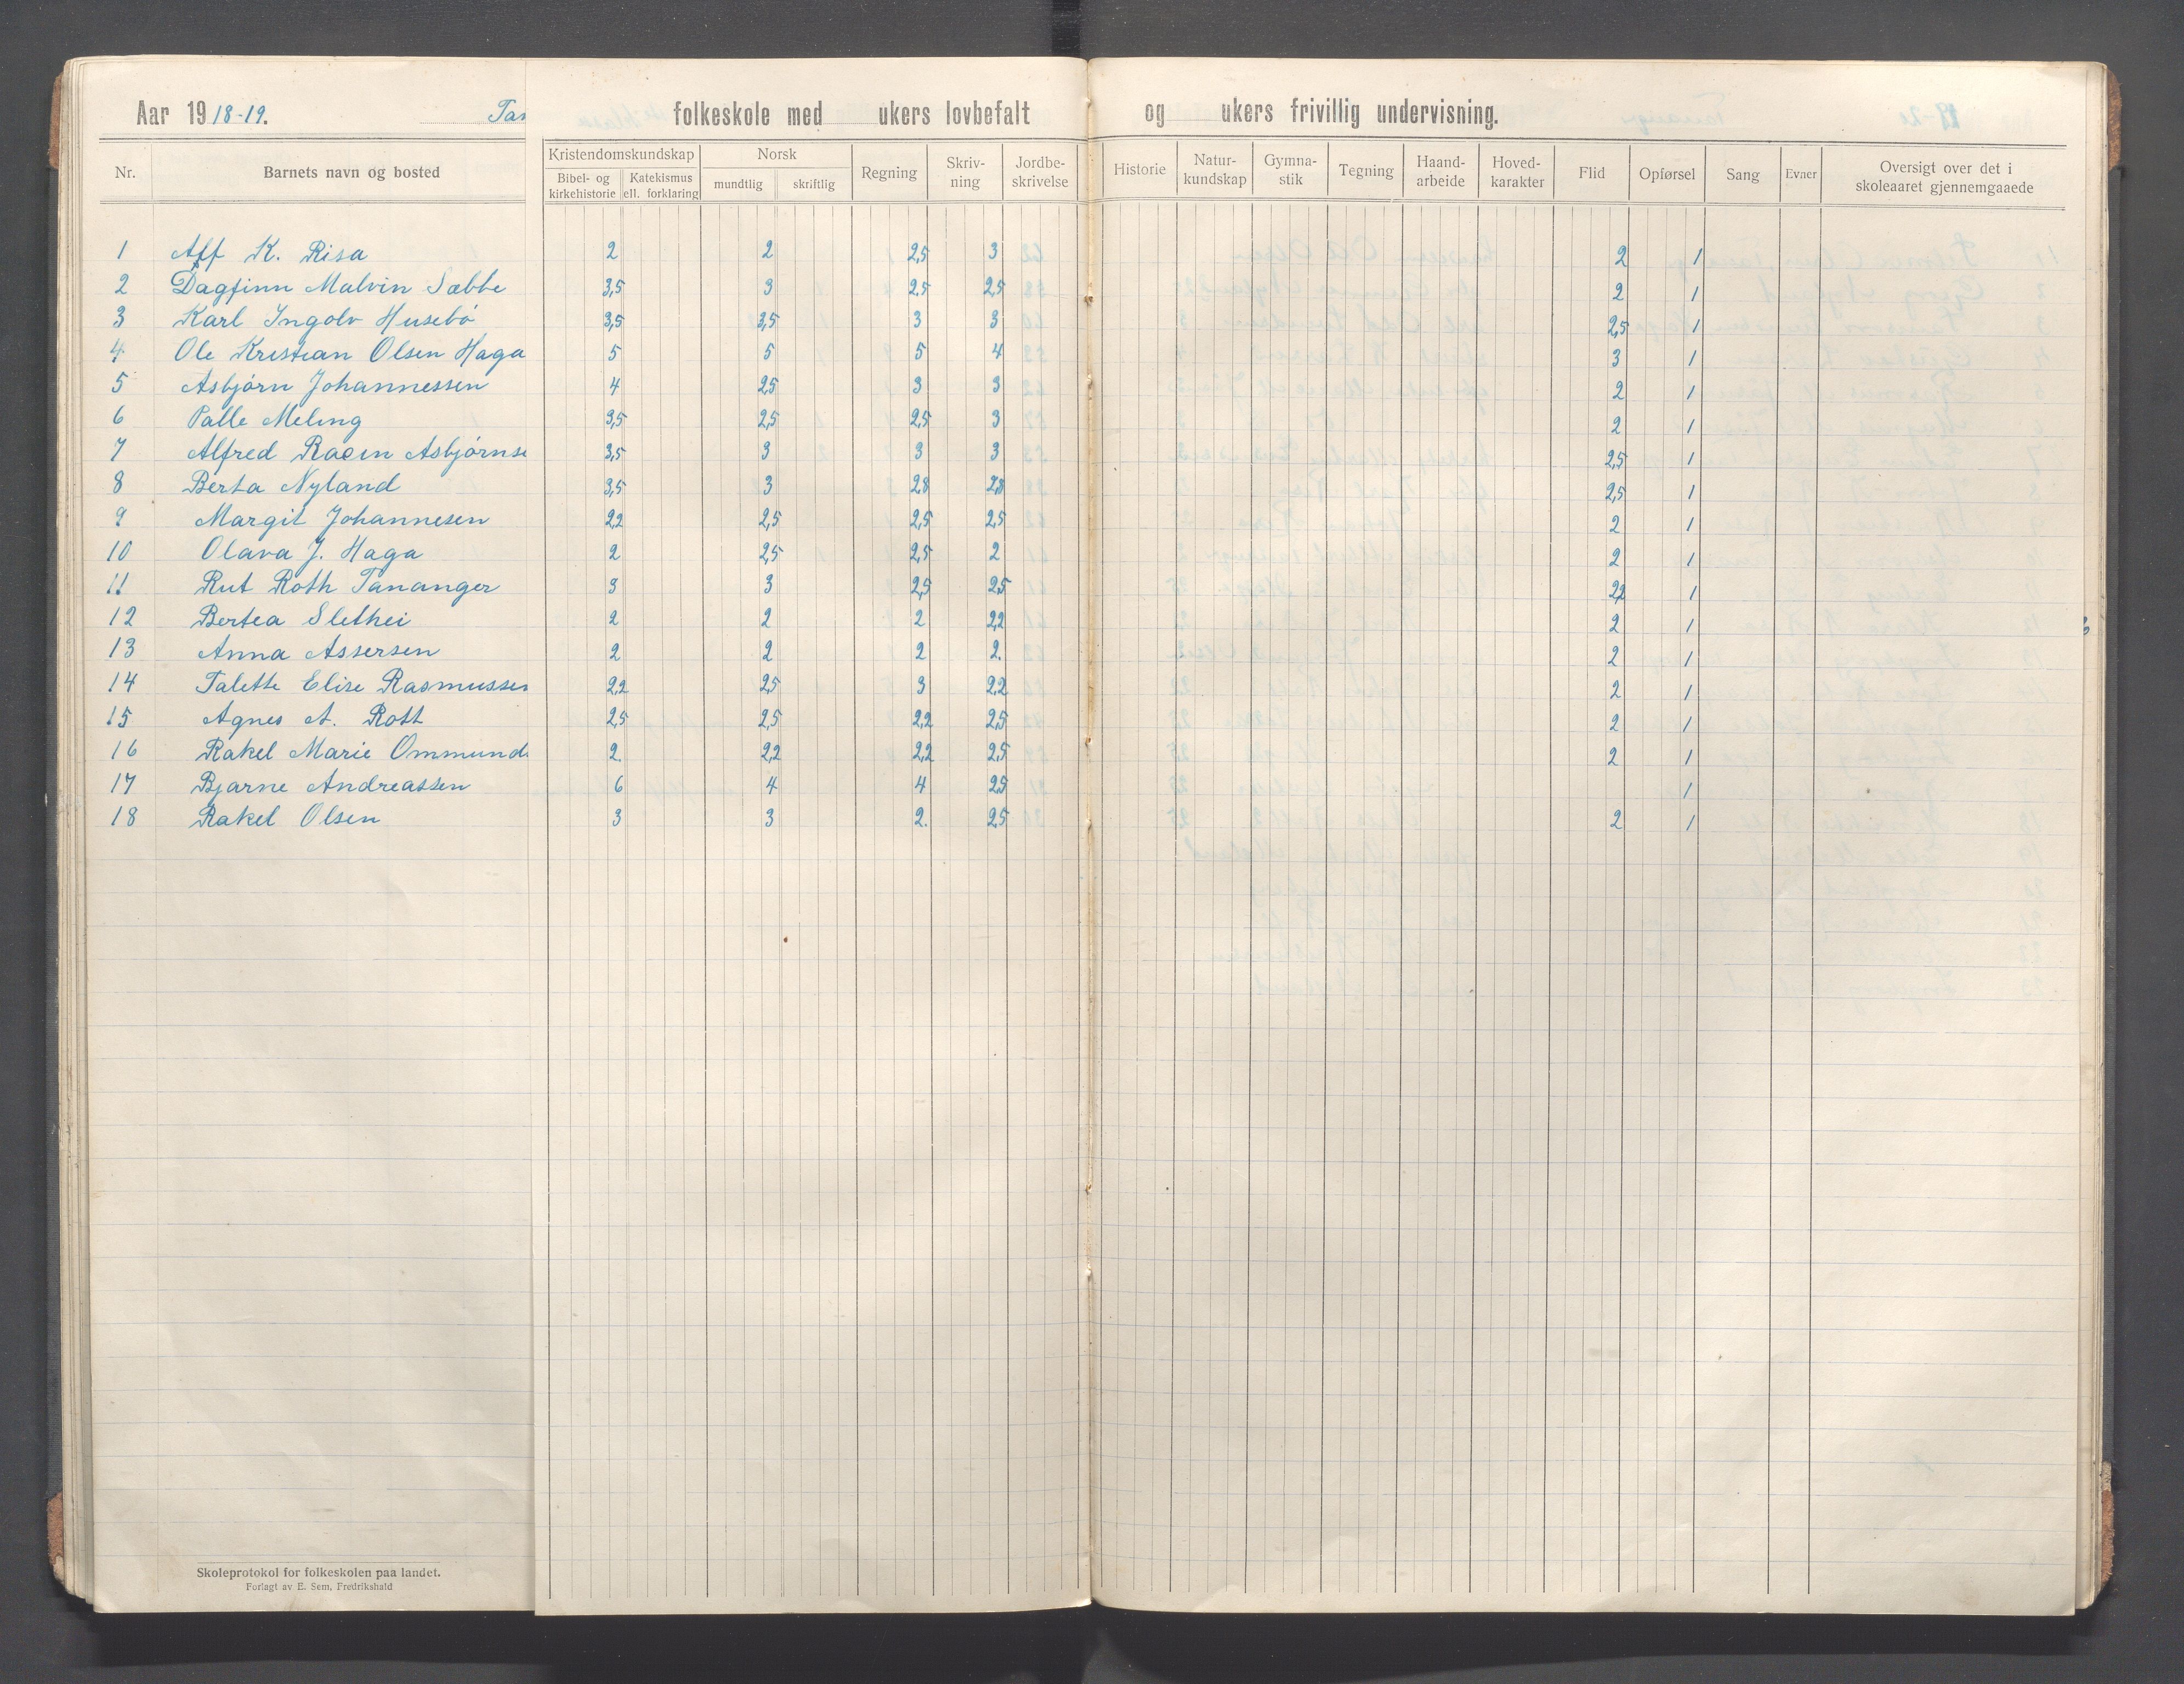 Aar 1918-19. Tan folkeskole med ukers lovbefalt og ukers frivillig undervisning.
Nr. Barnets navn og bosted Kristendomskundskap Bibel- og kirkehistorie Katekismus ell. forklaring Norsk mundtlig skriftlig Regning Skriv-ning Jordbe-skrivelse Historie Natur-kundskap Gymna-stik Tegning Haand-arbeide Hoved-karakter Flid Opførsel Sang Evner Oversigt over det i skoleaaret gjennemgaaede
1 Alf K. Risa 2 2 2,5 3 2 1
2 Dagfinn Malvin Sæbbe 3,5 3 2,5 2,5 2 1
3 Karl Ingolv Husebö 3,5 3,5 3 3 2,5 1
4 Ole Kristian Olsen Haga 5 5 5 4 3 1
5 Asbjørn Johannessen 4 2,5 3 3 2 1
6 Palle Meling 3,5 2,5 2,5 3 2 1
7 Alfred Asbjørnse 3,5 3 3 3 2,5 1
8 Berta Nyland 3,5 3 2,8 2,8 2,5 1
9 Margit Johannesen 2,2 2,5 2,5 2,5 2 1
10 Olava J. Haga 2 2,5 2,5 2 2 1
11 Rut Roth Tananger 3 3 2,5 2,5 2,2 1
12 Bertea Slethei 2 2 2 2,2 2 1
13 Anna Assersen 2 2 2 2. 2 1
14 Talette Elise Rasmussen 2,2 2,5 3 2,2 2 1
15 Agnes A. Rott 2,5 2,5 2,2 2,5 2 1
16 Rakel Marie Ommund 2. 2,2 2,2 2,5 2 1
17 Bjarne Andreassen 6 4 4 2,5 1
18 Rakel Olsen 3 3 2. 2,5 2 1
Skoleprotokol for folkeskolen paa landet.
Forlagt av E. Sem, Fredrikshald